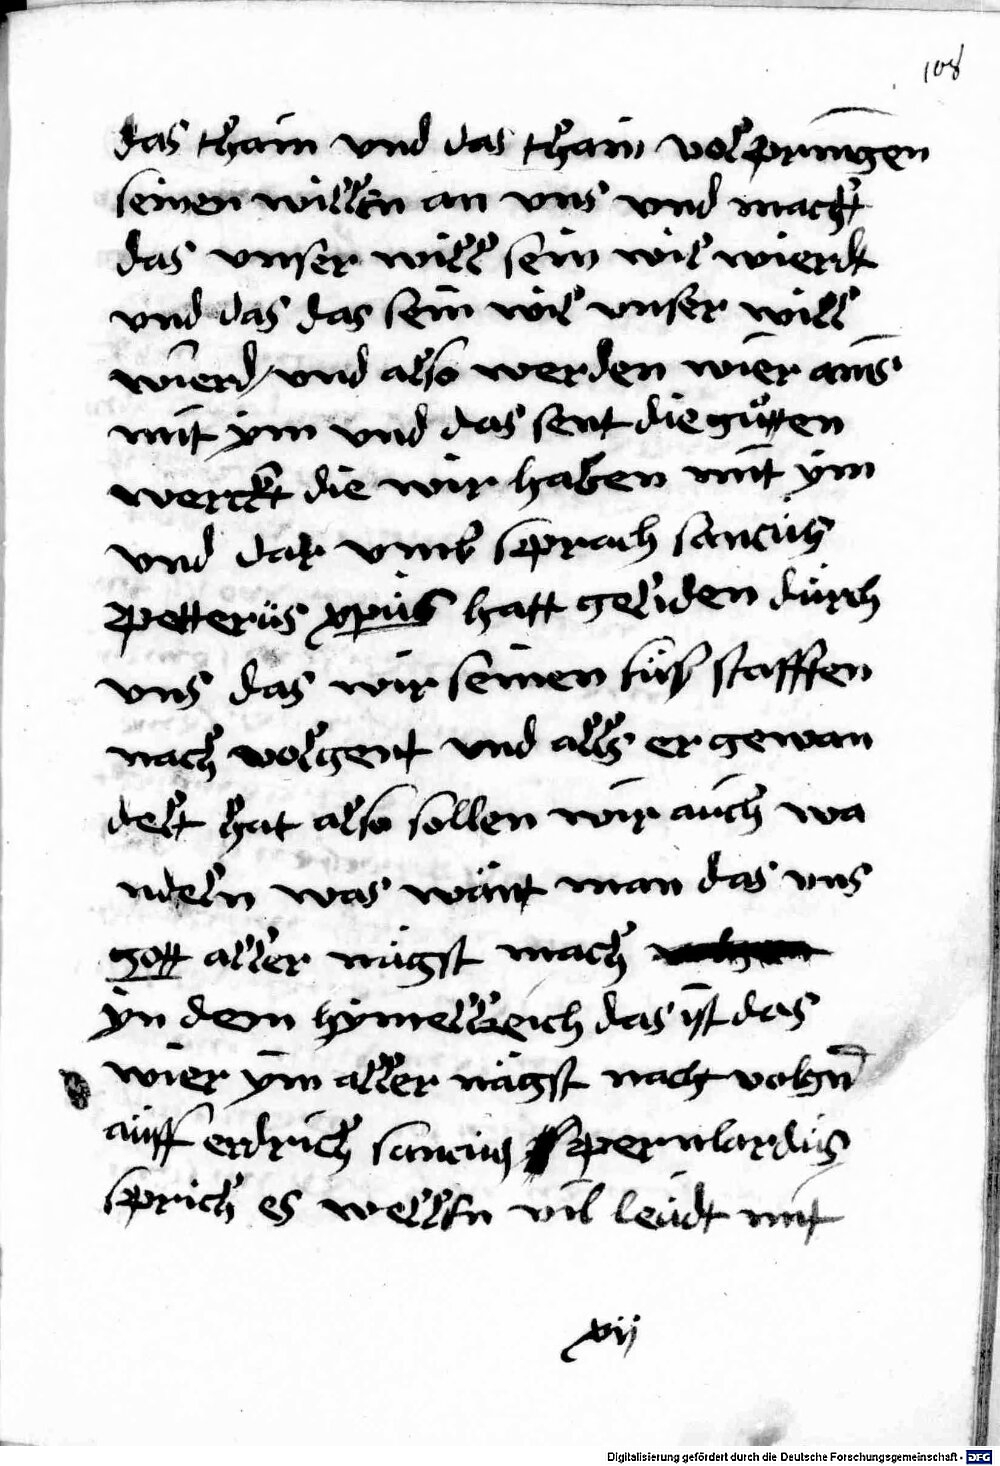 108
das thain und das thain volpringen
seinen willen an vns vnd macht
das vnser will sein wil wierdt
vnd das das sein wil vnser will
wierd / vnd also werden wier ains
mit ÿm vnd das sent die gůtten
werckt die wir haben mit ÿm
vnd dar vmb sprach sanctüs
petterüs xpüs hatt geliden dürch
vns das wir seinen füß stafften
nach volgent vnd alls er gewan
delt hat also sollen wir aüch wa
ndeln was wänt man das vns
gott aller nägst mach
ÿn dem hÿmellreich das ist das
wier ÿm aller nägst nach volgn̄
aüff erdrich sanctüs pernlardüs
sprich es wellen vil leüdt mit
xvij
Digitalisierung gefördert durch die Deutsche Forschungsgemeinschaft - DFG